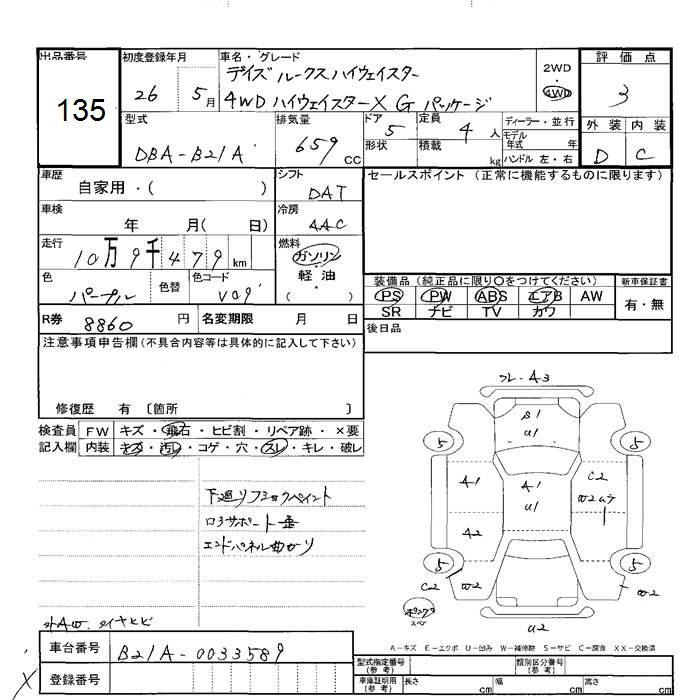 出品番号
135
初度登録年月
26 5月
車名・グレード
デイズ ルークスハイウェイスター
4WD ハイウェイスターX G パッケージ
2WD
・
4WD
評価点
3
外装 内装
D C
型式
DBA-B21A
排気量
659 CC
ドア 5
形状
定員 4 人
積載 kg
ディーラー・並行
モデル
年式 年
ハンドル 左・右
車歴
自家用・( )
シフト
DAT
セールスポイント (正常に機能するものに限ります)
車検
年 月( 日)
冷房
AAC
走行
10万9千479 km
燃料
ガソリン
軽・油
( )
色
パープル
色替
色コード
V09
装備品 (純正品に限り○をつけてください)
PS PW ABS エアB AW
SR ナビ TV カワ
新車保証書
有・無
R券 8860 円
名変期限 月 日
後日品
注意事項申告欄(不具合内容等は具体的に記入して下さい)
修復歴 有 〔箇所 〕
検査員
記入欄
FW キズ・飛石・ヒビ割・リペア跡・×要
内装 キズ・汚レ・コゲ・穴・スレ・キレ・破レ
下廻リ
コアサポート歪
エンドパネル曲がり
外AW. タイヤヒビ
フレ-A3
B1
U1
5
5
A1
A1
U1
C2
W2
A2
5
5
C2
W2
W2
U2
スペア
A-キズ E-エクボ U-凹み W-補修跡 S-サビ C-腐食 XX-交換済
車台番号
B21A-0033589
登録番号
型式指定番号
(参考)
類別区分番号
(参考)
車庫証明用
(参考)
長さ cm
幅 cm
高さ cm